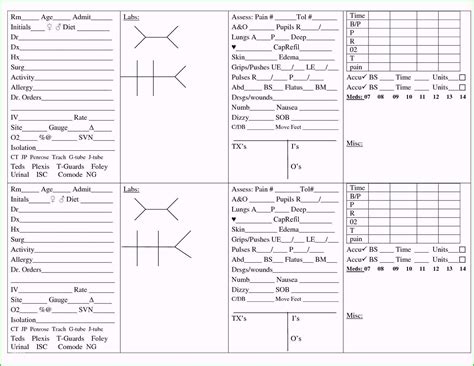 Rm____ Age_____Admit_____
Initials____ ♀ ♂ Diet_______
Dr
Dx
Hx
Surg
Activity
Allergy
Dr. Orders
IV Rate
Site Gauge Δ
O2 %@ SVN
Isolation
CT JP Penrose Trach G-tube J-tube
Teds Plexis T-Guards Foley
Urinal ISC Comode NG
Labs:
Assess: Pain # Tol#
A&O Pupils R / L
Lungs A P Deep
♥ CapRefil
Skin Edema
Grips/Pushes UE / LE /
Pulses R / L /
Abd BS / /
Drsgs/wounds
Numb Nausea
Dizzy SOB
C/DB Move Feet
TX's
I's
O's
Time
B/P
P
R
O2
T
pain
Accu✓ BS Time Units
Accu✓ BS Time Units
Meds: 07 08 09 10 11 12 13 14
Misc:
Rm____ Age_____Admit_____
Initials____ ♀ ♂ Diet_______
Dr
Dx
Hx
Surg
Activity
Allergy
Dr. Orders
IV Rate
Site Gauge Δ
O2 %@ SVN
Isolation
CT JP Penrose Trach G-tube J-tube
Teds Plexis T-Guards Foley
Urinal ISC Comode NG
Labs:
Assess: Pain # Tol#
A&O Pupils R / L
Lungs A P Deep
♥ CapRefil
Skin Edema
Grips/Pushes UE / LE /
Pulses R / L /
Abd BS / /
Drsgs/wounds
Numb Nausea
Dizzy SOB
C/DB Move Feet
TX's
I's
O's
Time
B/P
P
R
O2
T
pain
Accu✓ BS Time Units
Accu✓ BS Time Units
Meds: 07 08 09 10 11 12 13 14
Misc: